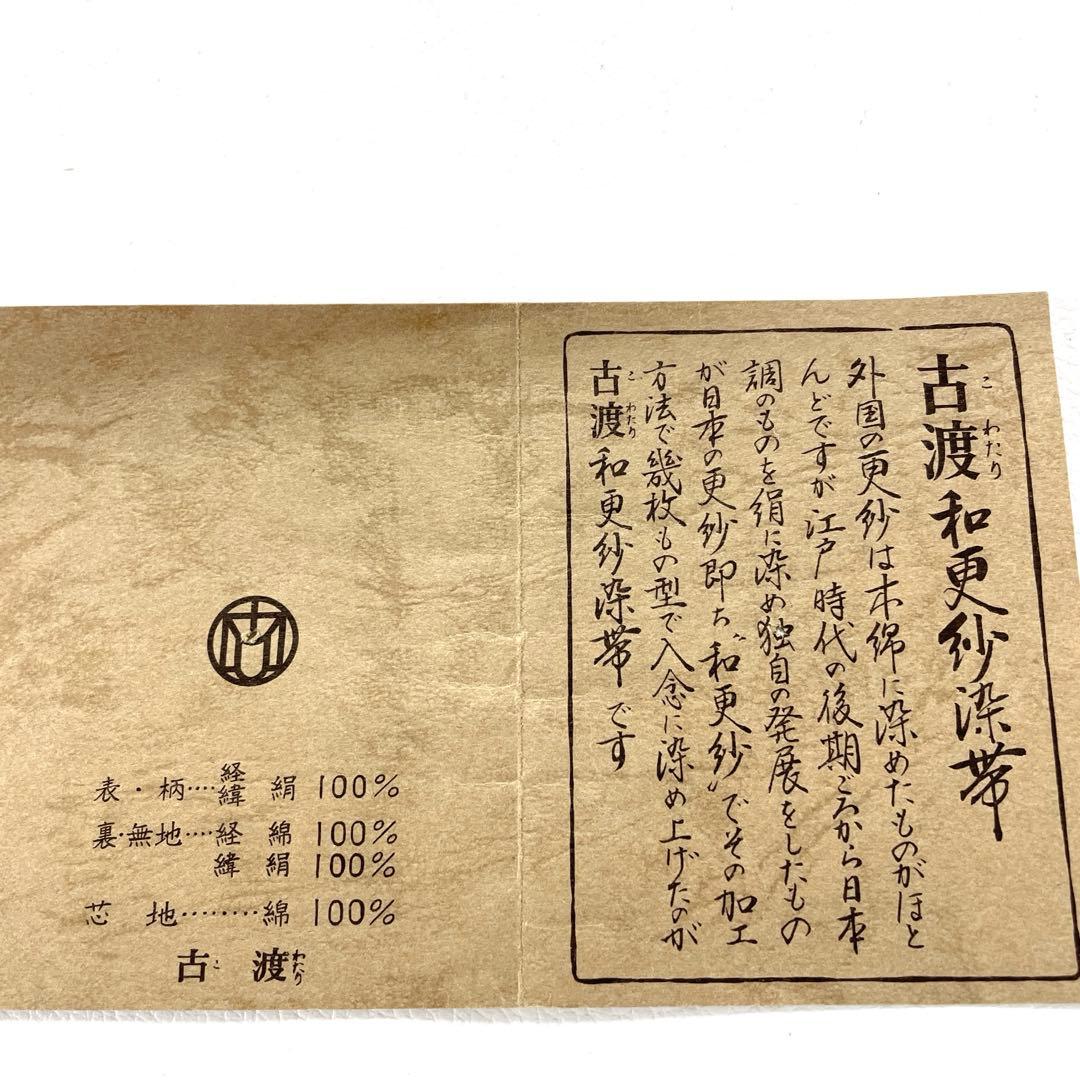 古渡和更紗染帯
こ わたり
外国の更紗は木綿に染めたものがほと
んどですが江戸時代の後期ごろから日本
調のものを絹に染め独自の発展をしたもの
が日本の更紗即ち〝和更紗〟でその加工
方法で幾枚もの型で入念に染め上げたのが
古渡和更紗染帯です
こ わたり
表・柄‥‥経緯 絹 100%
裏・無地‥‥経 綿 100%
緯 絹 100%
芯 地‥‥‥‥綿 100%
古 渡
こ わたり